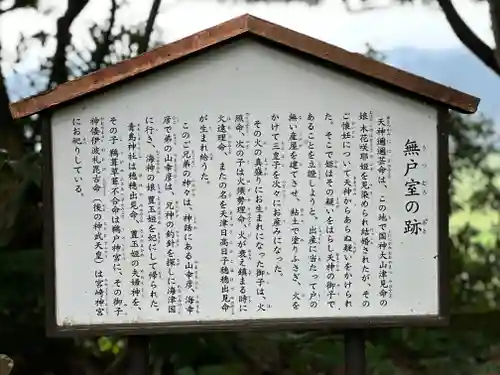 無戸室の跡
うつむろ
天神邇邇芸命は、この地で国神大山津見命の
娘、木花咲耶姫を見染められ結婚されたが、その
ご懐妊について天神からあらぬ疑いをかけられ
た。そこで姫はその疑いをはらし天神の御子で
あることを立證しようと、出産に当たって戸の
無い産屋を建てさせ、粘土で塗りふさぎ、火を
かけて三皇子を次々にお産みになった。
その火の真盛りにお生まれになった御子は、火
照命、次の子は火須勢理命、火が衰え鎮まる時に
火遠理命、またの名を天津日高日子穂穂出見命
が生まれ給うた。
このご兄弟の神々は、神話にある山幸彦、海幸
彦で弟の山幸彦は、兄神の釣針を探しに海津国
に行き、海神の娘豊玉姫を妃にして帰られた。
青島神社は穂穂出見命、豊玉姫の夫婦神を、
その子、鵜葺草葺不合命は鵜戸神宮に、その御子
神倭伊波礼毘古命（後の神武天皇）は宮崎神宮
にお祀りしている。